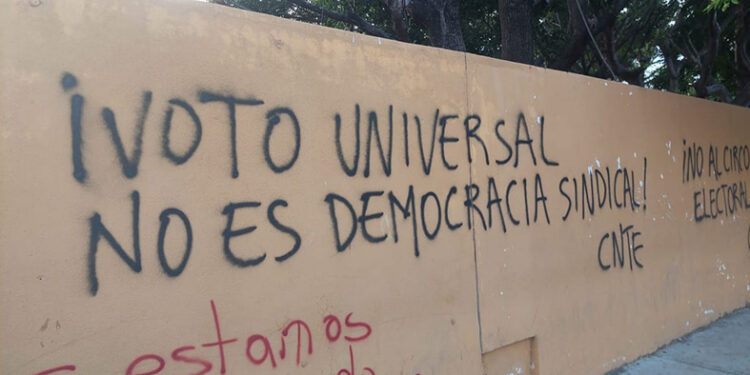 ¡VOTO UNIVERSAL
NO ES DEMOCRACIA SINDICAL!
CNTE
¡NO AL CIRCO
ELECTORAL
estamos